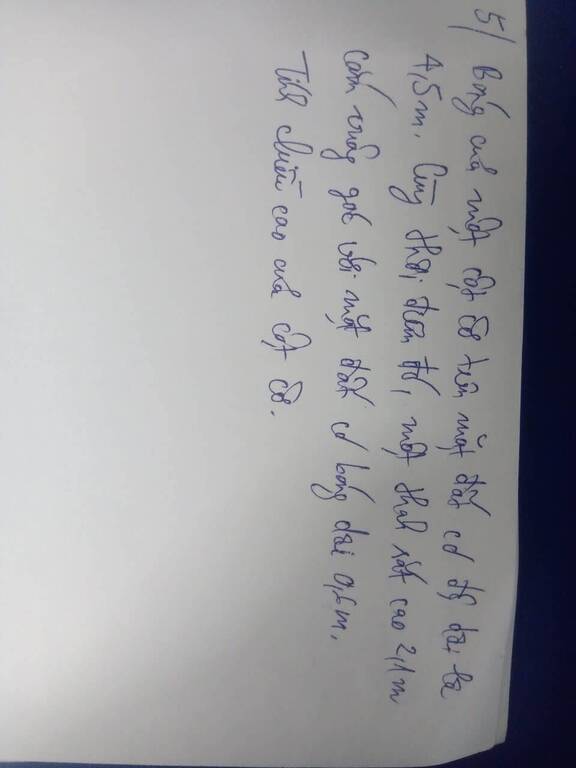 5/ Bóng của một cột cờ trên mặt đất có độ dài là
4,5m. Cùng thời điểm đó, một thanh sắt cao 2,1m
cắm vuông góc với mặt đất có bóng dài 0,6m.
Tính chiều cao của cột cờ.